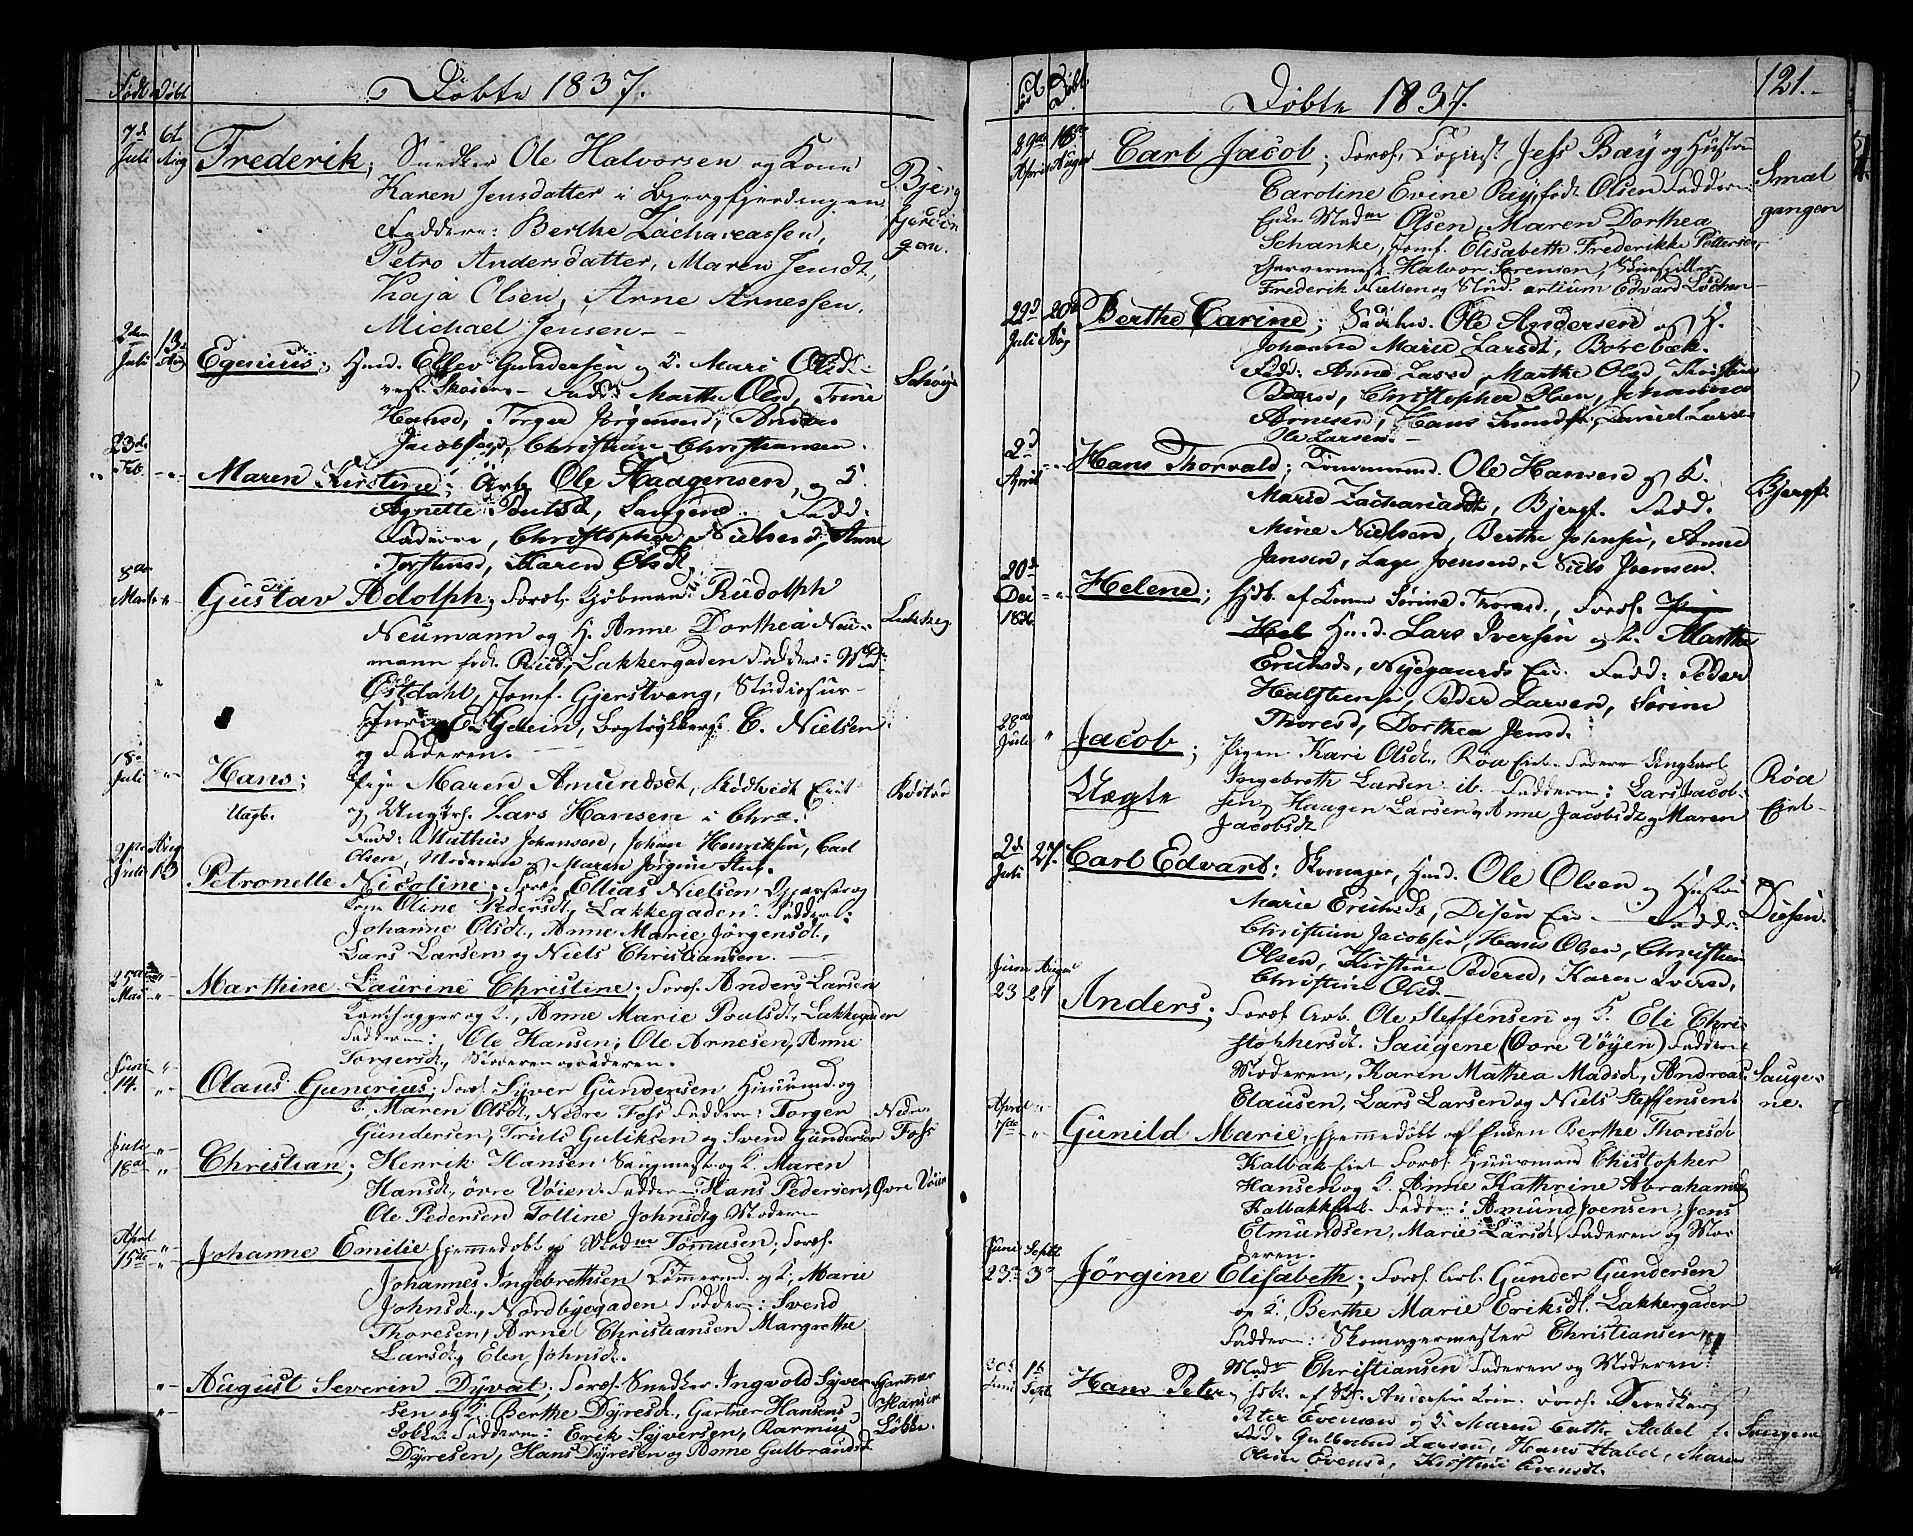 Født Døbt Døbte 1837.
7d Juli 6t Aug Frederik; Snedker Ole Halvorsen og Kone
Karen Jensdatter i Bjergfjerdingen Bjerg
Faddere: Berthe Zachareassen, fjerdin
Petro Andersdatter, Maren Jensdt, gen.
Kaja Olsen, Arne Arnessen,
Michael Jensen.
2den Juli 13. Aug Egenius; Huusmd. Ellev Gundersen og K. Mari Olsd.
Fadd: Marthe Olsd, Trine
Hansd, Torger Jørgensen, Anders
Jacobsen, Christian Christiansen.
23de Feb. Maren Kirstine; Arb. Ole Haagensen, og K.
Agnette Poulsd, Saugene. Fadd:
Faderen, Christopher Nielsen, Anne
Torstensd, Maren Olsdt.
8de Marts Gustav Adolph; Foræl. Kjøbmand Rudolph
Neumann og H. Anne Dorthea Neu-
mann født Ruud, Lakkegaden Faddere: Mad.
Østdahl, Jomf. Gjerstvang, Studiosus
Juris E. Gjein, Bogtrykkers. C. Nielsen
og Faderen.
18. Juli Hans; Pige Maren Amundsdt,
Uægt. og Ungk. Lars Hansen i Chra.
Fadd: Mathias Johansen, Johan Henriksen, Carl
Olsen, Moderen og Maren Jørgine
21de Juli Aug 13 Petronelle Nicoline; Foræl. Ellias Nielsen
Kone Oline Pedersdt, Lakkegaden. Faddere:
Johanne Olsdt, Anne Marie Jørgensdt,
Lars Larsen og Niels Christiansen.
25de Mai Marthine Laurine Christine; Foræl. Anders Larsen
og K. Anne Marie Poulsdt, Lakkegaden
Faddere: Ole Hansen, Ole Arnesen, Anne
Torgersdt, Moderen og Faderen.
Juni 14. Olaus Gunerius; Foræl. Syver Gundersen Huusmd. og
K. Maren Olsdt, Nedre Foss Faddere: Torger Nedre
Gundersen, Truls Guliksen og Svend Gundersen Foss
Juli 18de Christian; Henrik Hansen Saugmest. og K. Maren
Hansdt, øvre Vøien. Faddere: Hans Pedersen, Øvre Vøien
Ole Pedersen Tolline Johnsdt og Moderen
April 15de Johanne Emilie hjemmedøbt af Madm Tommesen, Foræl.
Johannes Ingebrethsen Tømmermd. og K. Marie
Johnsdt, Nordbyegaden Faddere: Svend
Thoresen, Arne Christiansen Margrethe
Larsdt og Elen Johnsdt.
August Severin Dyvat; Foræl. Snedker Ingvold Syver- Gartner
sen og K. Berthe Dyresdt, Gartner Hansens Hansens
Løkke Faddere: Erik Syversen, Rasmus Løkke.
Dyresen, Hans Dyresen og Anne Gulbrandsdt
Fød Døbt Døbte 1837. 121.
29de April 18de August Carl Jacob; Foræl. Copiist Jess Bay og Hustru
Caroline Evine Bay, født Olsen Faddere: Smal
Enke Madm Olsen, Maren Dorthea gangen
Schanke, Jomf. Elisabeth Frederikke Pettersen,
Garvermest. Halvor Sørensen,
Frederik Nielsen og Stud. artium Edvard Lochen
29d Juli 20de Aug Berthe Carine; Ole Andersen og H.
Johanna Marie Larsdt, Borebæk.
Fadd: Anne Larsd, Marthe Olsd, Kirstine
Christopher Olsen, Johannes
Arnesen, Hans Knudsen,
Ole Larsen.
2d April Hans Thorvald; Tømmermd. Ole Hansen og K.
Marie Zachariasdt, Bjergf. Fadd. Bjergf.
Mine Nielsen, Berthe Johnsen, Anne
Jansen, Lage Joensen, Niels Joensen.
20de Dec 1836 Helene; hjdb. af Konen Sørine Thoresd., Foræl.
Huusd. Lars Iversen og K. Marthe
Eriksdt, Nyegaards Eie. Fadd: Peder
Halstensen, Peder Larsen, Sørine
Thoresd, Dorthea Jensd.
28de Juli Jacob; Pigen Kari Olsdt, Røa Eiet. Faderen Ungkarl
Uægte Ingebreth Larsen ib. Faddere: Lars Jacob- Røa
sen, Haagen Larsen, Anne Jacobsdt og Maren Eiet
Jacobsdt
2d Juli 27. Carl Edvart; Skomager, Huusmd. Ole Olsen og Hustru
Marie Eriksdt, Disen Eie Fadd: Diesen.
Christian Jacobsen, Hans Olsen, Christian
Olsen, Kirstine Pedersd, Karen Iversd,
Christine Olsd.
Juni 23 August 27 Anders; Foræl. Arb. Ole Steffensen og K. Eli Chri-
stophersdt. Saugene (Øvre Vøyen) Faddere
Moderen, Karen Mathea Madsdt, Andreas Sauge-
Clausen, Lars Larsen og Niels Steffensen ne.
April 7de Gunild Marie, hjemmedøbt af Enken Berthe Thoresdt
Kalbak Eiet Foræl. Huusmand Christopher
Hansen og K. Anne Kathrine Abrahamsd
Kalbakeiet. Faddere: Amund Joensen, Jens
Elmundsen, Marie Larsdt, Faderen og Mo-
deren.
Juni 23. Septbr 3. Jörgine Elisabeth; Foræl. Arb. Gunder Gundersen
og K. Berthe Marie Eriksdt. Lakkegaden
Faddere: Skomagermester Christiansen,
Madm Christiansen Faderen og Moderen
30d Juni Sept. Hans Peter, Foræl. Snedker
Peter Evensen og K. Maren Stabel Saugene
Fadd: Gulbrand Larsen, Hans Stabel, Maren
Oline Evensd, Kirstine Evensdt.